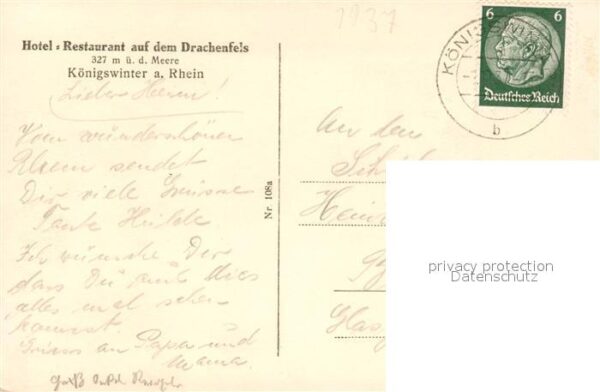 1937
Hotel-Restaurant auf dem Drachenfels
327 m ü. d. Meere
Königswinter a. Rhein
Lieber
Vom wunderschönen
Rhein sendet
Dir viele Grüsse
Tante Hilde
Ich wünsche Dir
dass Du auch dies
alles mal sehen
kannst.
Grüss an Papa und
Mama.
Nr. 108a
6 6
Deutsches Reich
KÖNIGSWIN
b
An den
privacy protection
Datenschutz